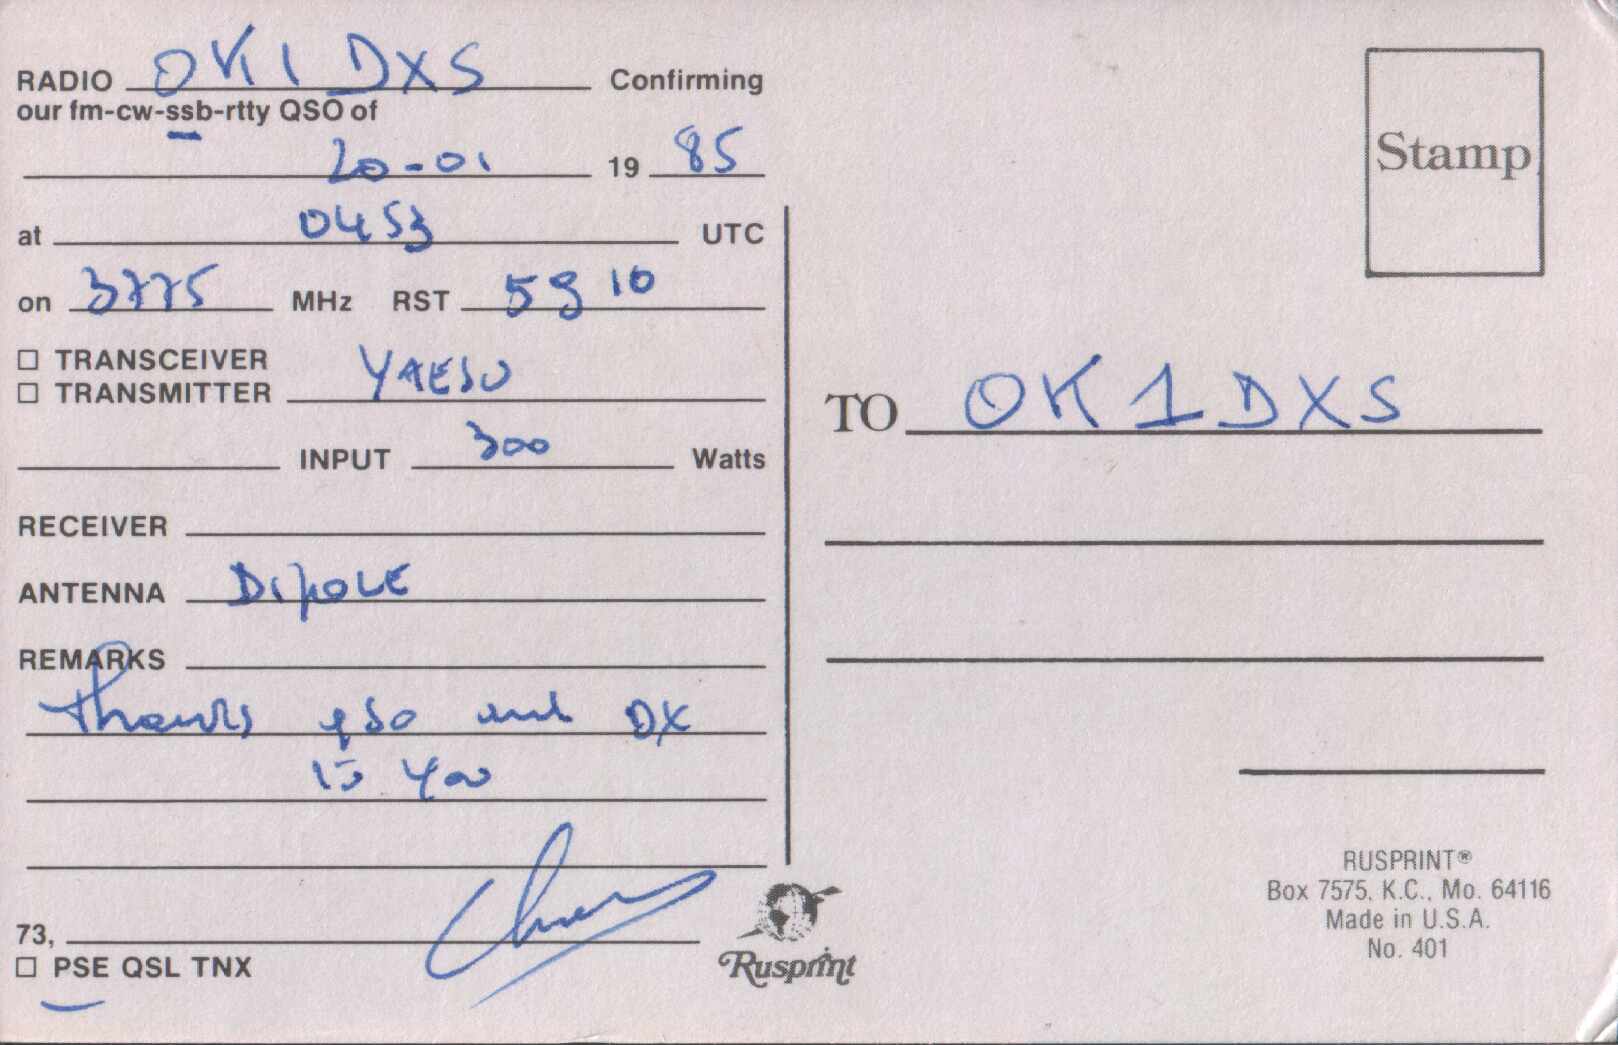 RADIO OK1DXS Confirming
our fm-cw-ssb-rtty QSO of
20-01 19 85
at 0453 UTC
on 3775 MHz RST 59 10
☐ TRANSCEIVER
☐ TRANSMITTER YAESU
INPUT 300 Watts
RECEIVER
ANTENNA DipoLE
REMARKS
Thanks qso and DX
to you
73,
☐ PSE QSL TNX
Rusprint
Stamp
TO OK1DXS
RUSPRINT®
Box 7575, K.C., Mo. 64116
Made in U.S.A.
No. 401